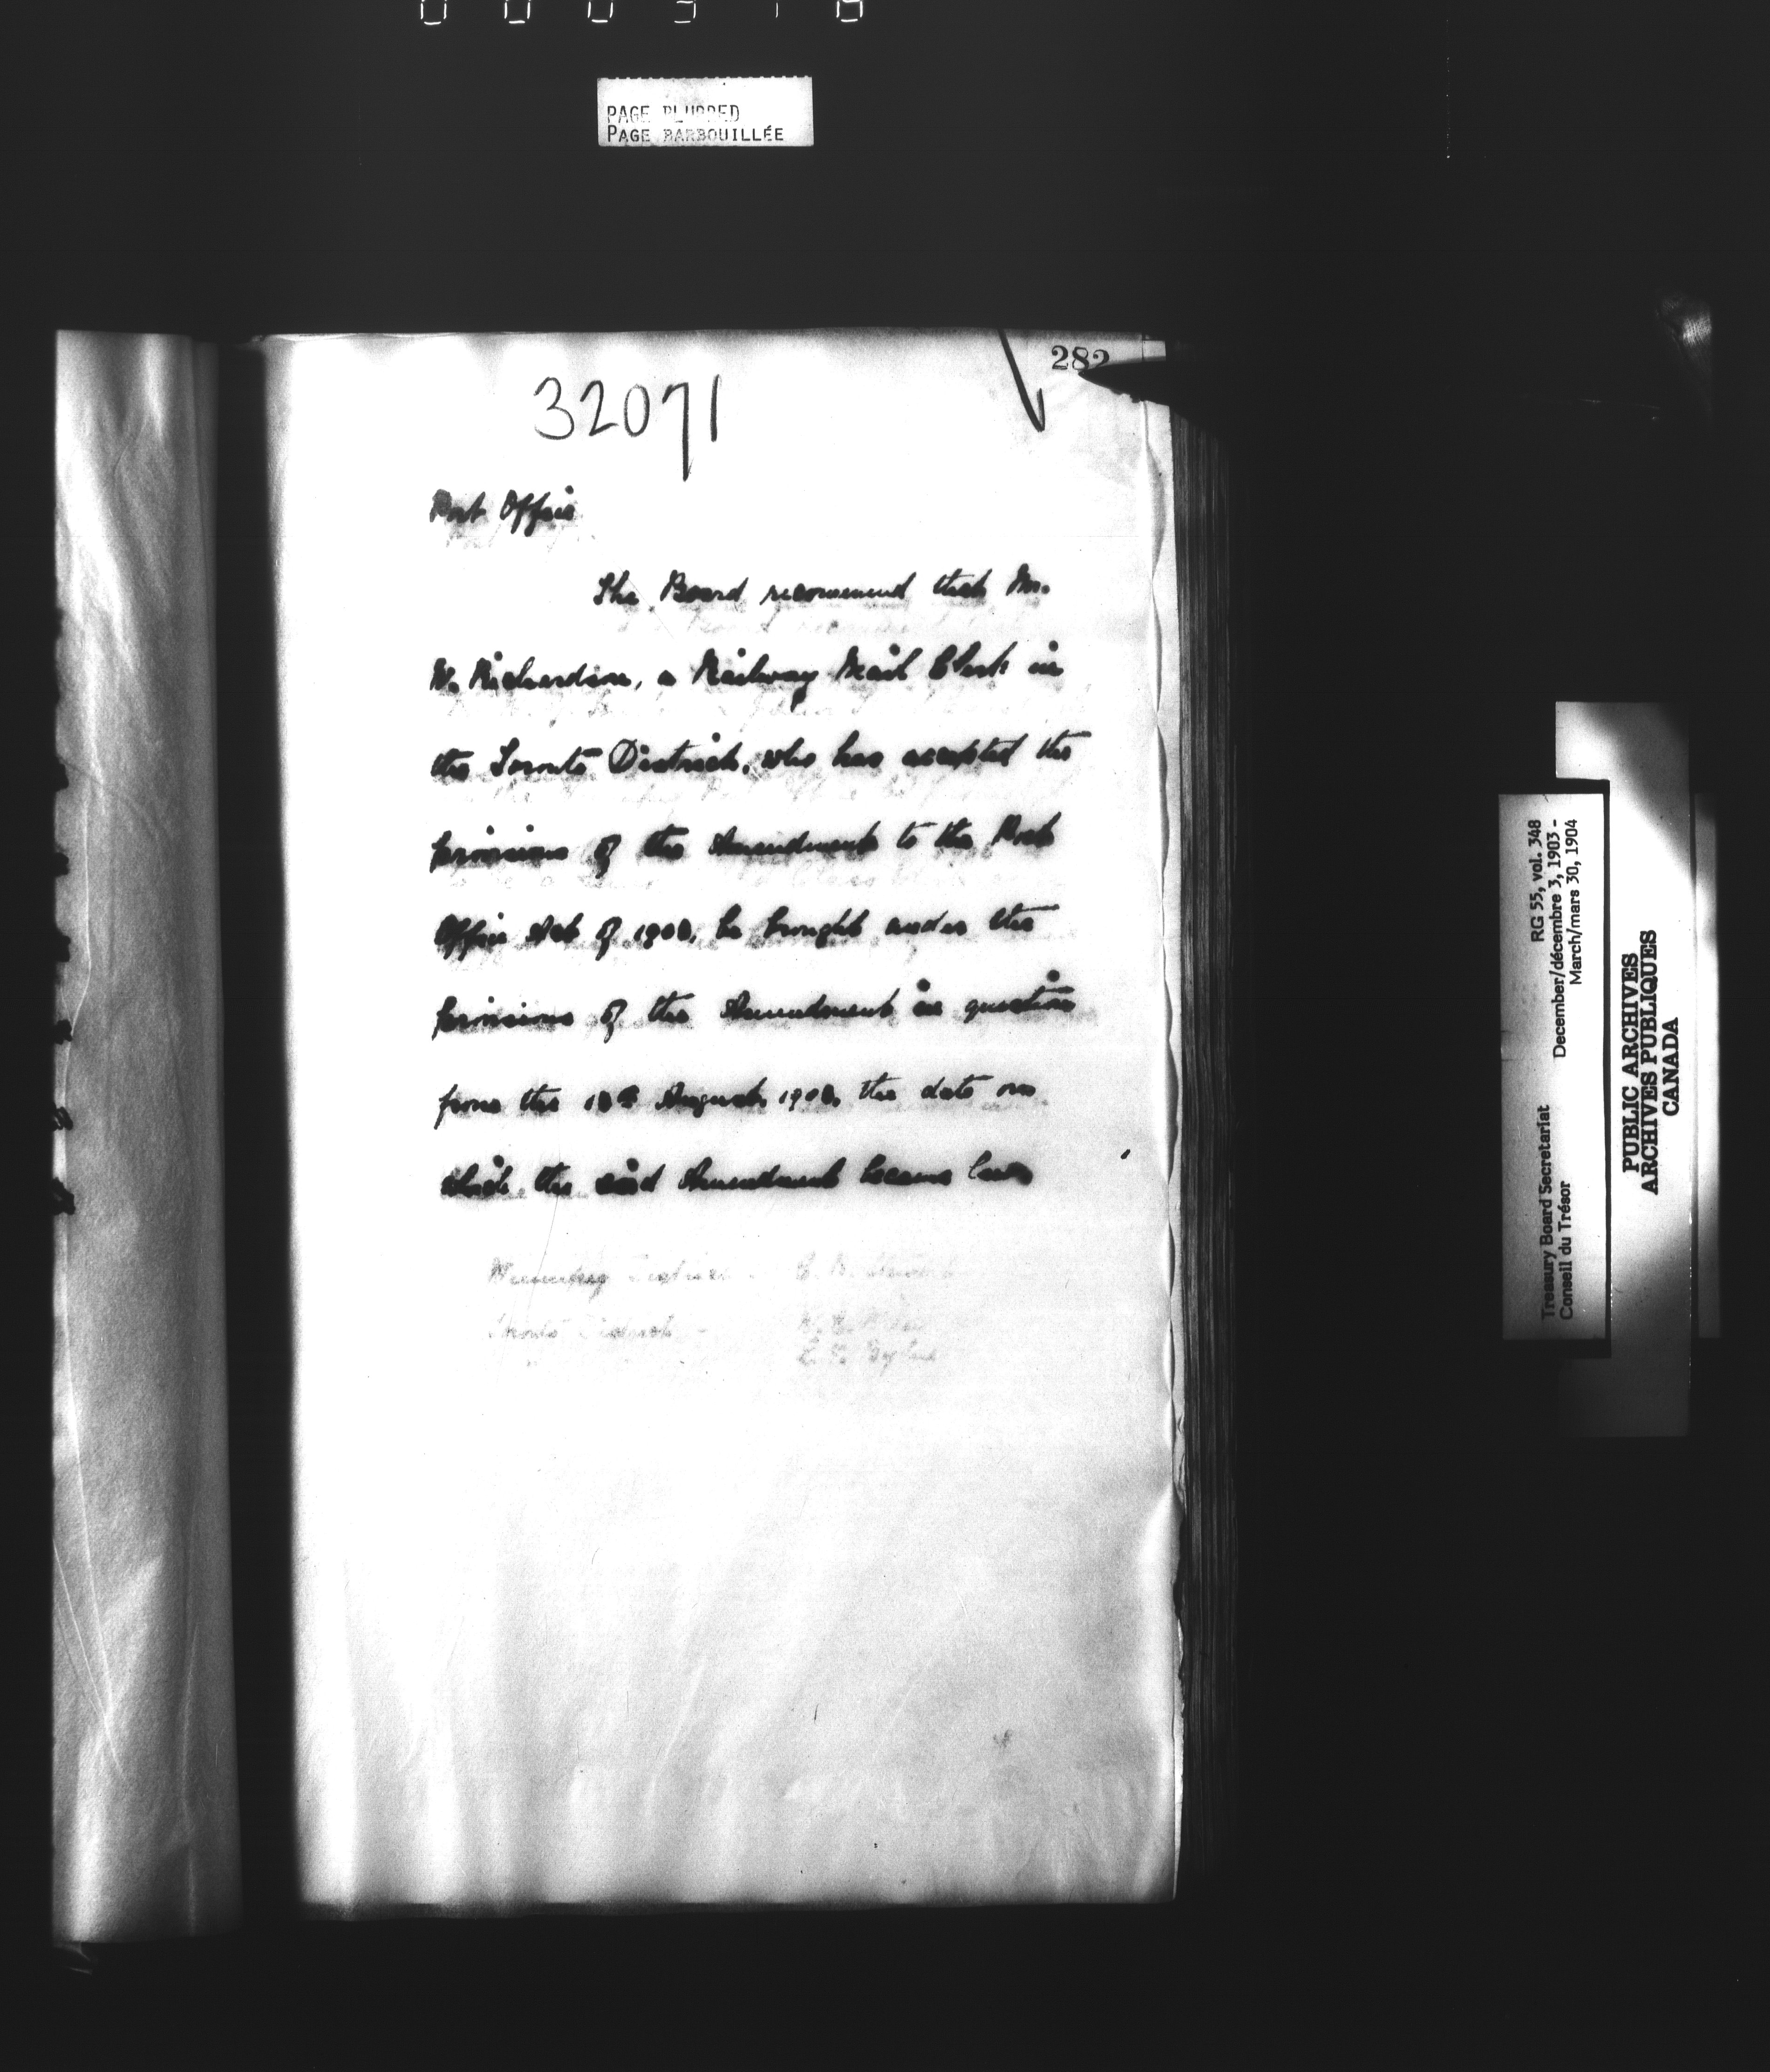 PAGE BLURRED
PAGE BARBOUILLÉE
282
32071
Post Office
The Board recommend that Mr.
W. Richardson, a Railway Mail Clerk in
the Toronto District, who has accepted the
provisions of the Amendment to the Post
Office Act of 1903, be brought under the
provisions of the Amendment in question
from the August, 1903, the date on
which the said Amendment became law
RG 55, vol. 348
December/décembre 3, 1903 -
March/mars 30, 1904
Treasury Board Secretariat
Conseil du Trésor
PUBLIC ARCHIVES
ARCHIVES PUBLIQUES
CANADA